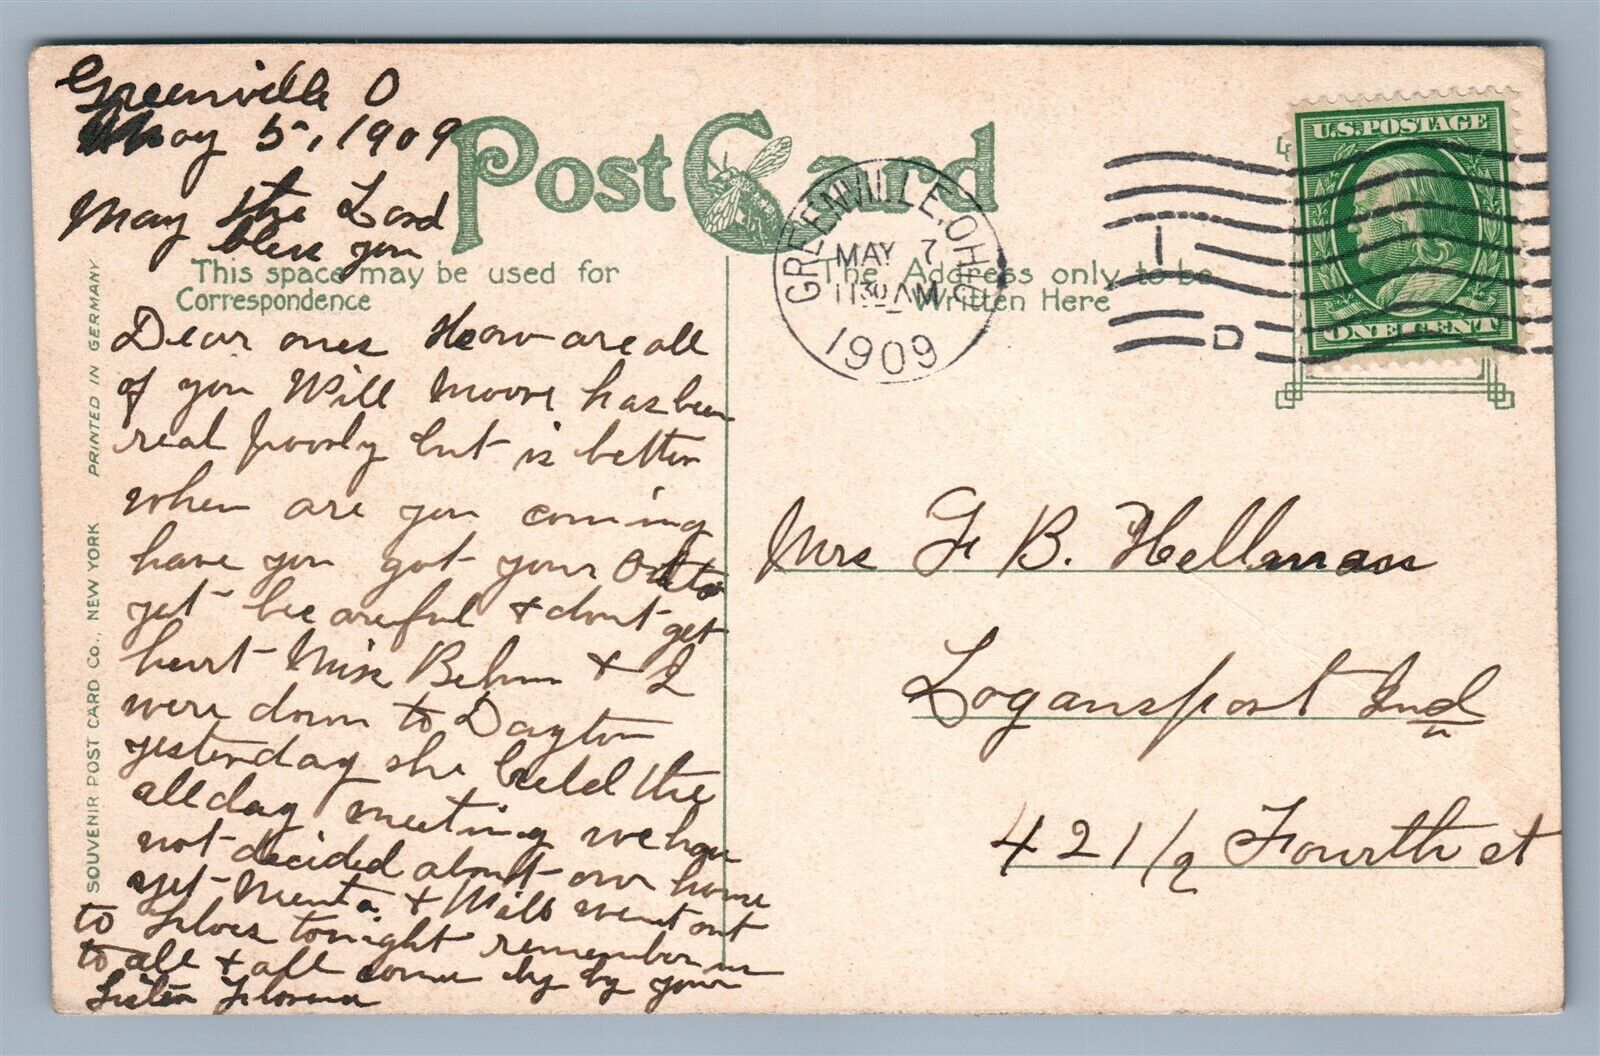 Greenville O
May 5, 1909
May the Lord
bless you
Post Card
GREENVILLE, OHIO
MAY 7
11 30 AM
1909
1
D
U.S. POSTAGE
ONE CENT
This space may be used for
Correspondence
The Address only to be
Written Here
Dear ones How are all
of you Will Moore has been
real poorly but is better
when are you coming
have you got your Auto
yet be careful & dont get
hurt Miss Behm & I
were down to Dayton
yesterday she held the
all day meeting we have
not decided about our home
yet Menta & Will went out
to Flo's tonight remember us
to all & all come by by your
Sister Florence
Mrs F B. Hellman
Logansport Ind
421 1/2 Fourth st
SOUVENIR POST CARD CO., NEW YORK PRINTED IN GERMANY